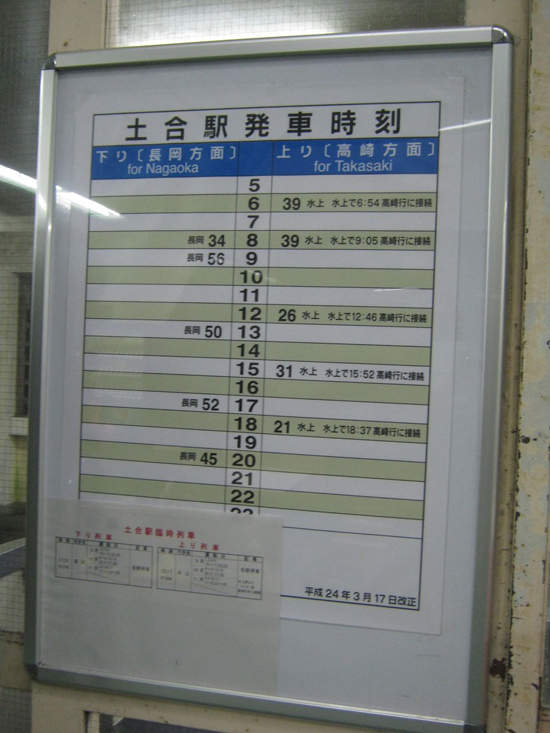 土合駅発車時刻
下り〔長岡方面〕 上り〔高崎方面〕
for Nagaoka for Takasaki
5
6 39 水上 水上で6:54高崎行に接続
7
長岡 34 8 39 水上 水上で9:05高崎行に接続
長岡 56 9
10
11
12 26 水上 水上で12:46高崎行に接続
長岡 50 13
14
15 31 水上 水上で15:52高崎行に接続
16
長岡 52 17
18 21 水上 水上で18:37高崎行に接続
19
長岡 45 20
21
22
23
土合駅臨時列車
下り列車 上り列車
平成24年3月17日改正